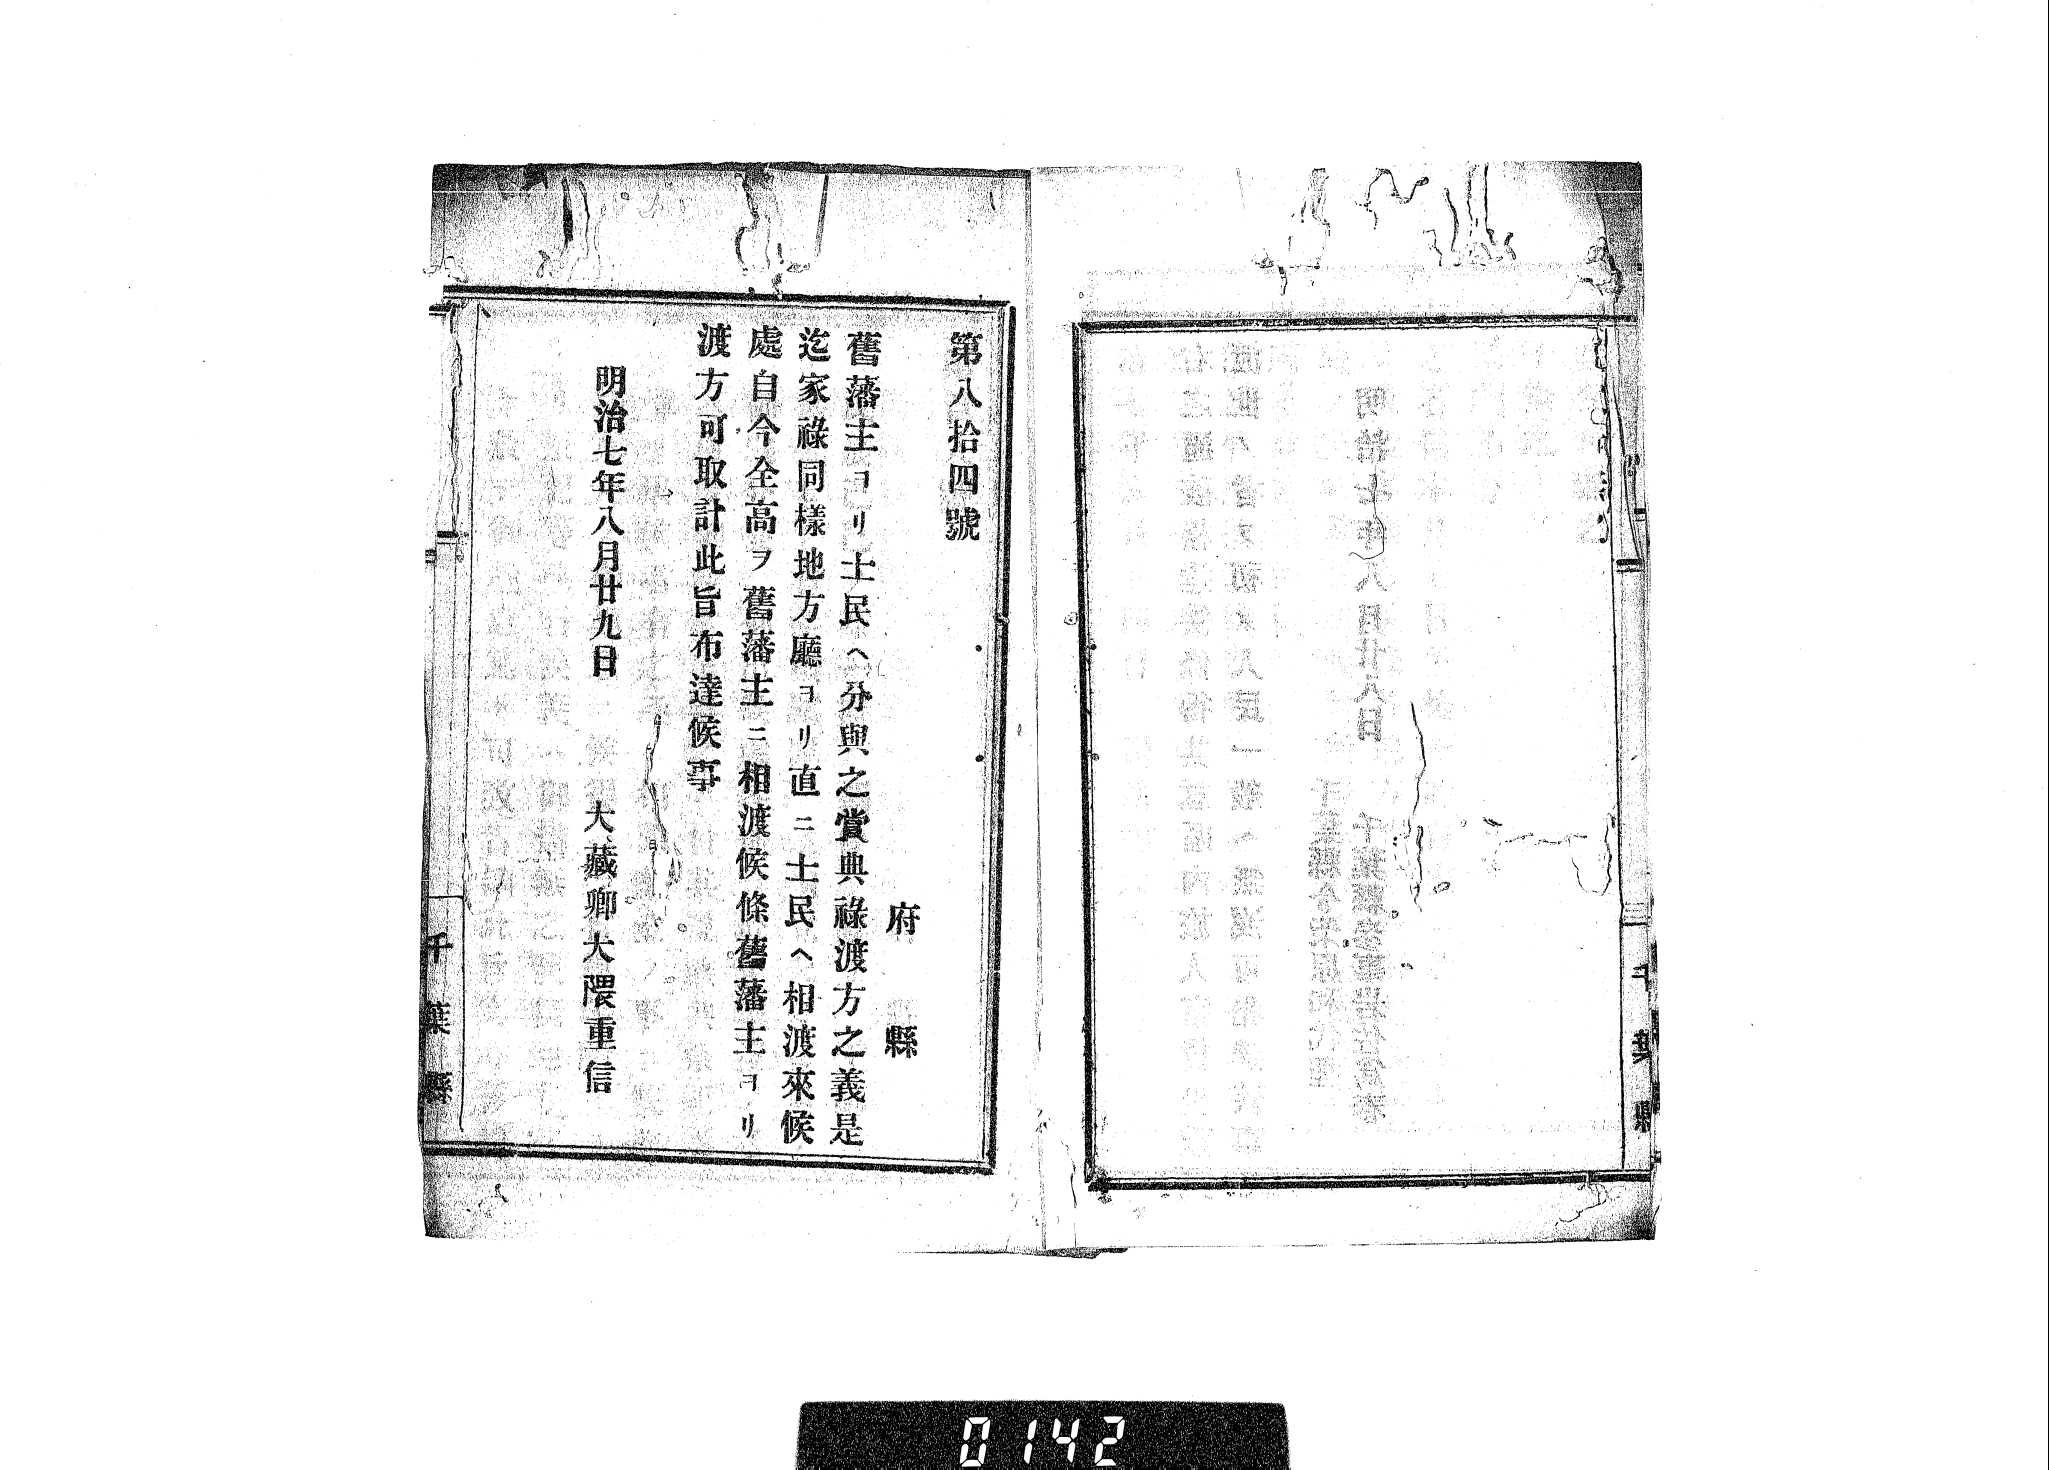 千葉縣
第八拾四號
府縣
舊藩主ヨリ士民ヘ分與之賞典祿渡方之義是
迄家祿同樣地方廳ヨリ直ニ士民ヘ相渡來候
處自今全高ヲ舊藩主ニ相渡候條舊藩主ヨリ
渡方可取計此旨布達候事
明治七年八月廿九日
大藏卿大隈重信
千葉縣
0142